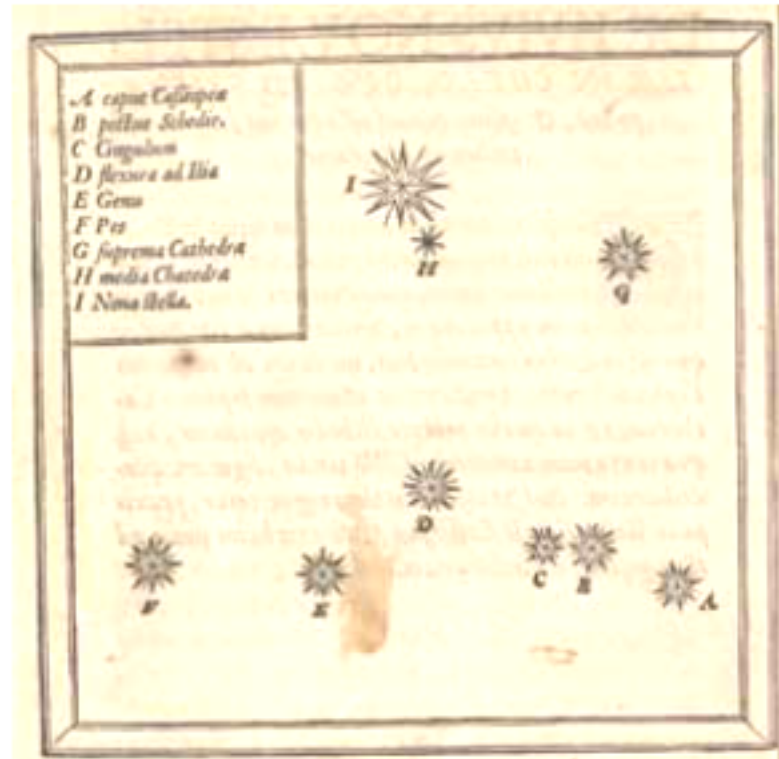 A caput Cassiopeæ
B pectus Schedir.
C Cingulum
D flexura ad Ilia
E Genu
F Pes
G suprema Cathedræ
H media Chatedræ
I Nova stella.
I
H
G
D
C
B
A
E
F